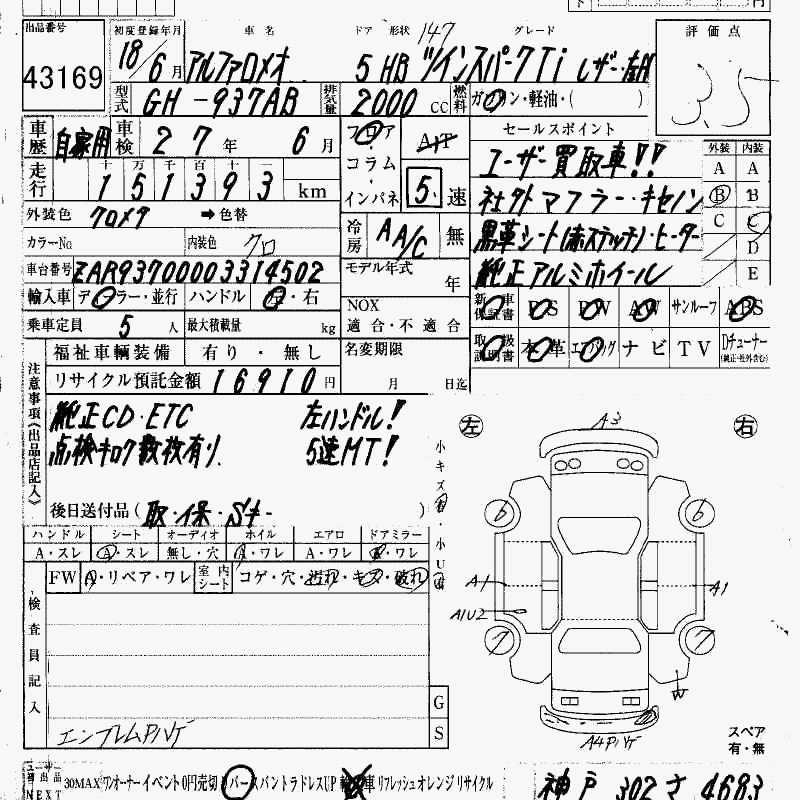 出品番号
43169
初度登録年月 車名 ドア 形状 グレード
18/6月 アルファロメオ 5 HB 147 ツインスパークTi レザー
型式 GH-937AB 排気量 2000 CC 燃料 ガソリン・軽油・( )
評価点
3.5
車歴 自家用 車検 27年 6月
フロア・コラム・インパネ A/T 5速
セールスポイント
ユーザー買取車!!
社外マフラー・キセノン
黒革シート(赤ステッチ)・ヒーター
純正アルミホイール
外装 内装
A A
B B
C C
D
E
走行 十 万 千 百 十 一
151393 km
外装色 クロメタ ➡色替
冷房 A A/C 無
カラーNo 内装色 クロ
モデル年式 年
車台番号 ZAR93700003314502
輸入車 ディーラー・並行 ハンドル 左・右
NOX 適合・不適合
新車保証書 PS PW AW サンルーフ ABS
乗車定員 5人 最大積載量 kg
取扱説明書 本革 エアバッグ ナビ TV Dチューナー (純正・社外含む)
福祉車輌装備 有り・無し
名変期限 月 日迄
リサイクル預託金額 16910円
注意事項《出品店記入》
純正CD・ETC 左ハンドル!
点検キロク数枚有り 5速MT!
後日送付品(取・保・Sキー )
ハンドル シート オーディオ ホイル エアロ ドアミラー
A・スレ A・スレ 無し・穴 A・ワレ A・ワレ A・ワレ
FW A・リペア・ワレ 室内シート コゲ・穴・汚れ・キズ・破れ
検査員記入
エンブレムハゲ
G
S
小キズ有・小U有
左 右
A3
6 6
A1 A1
A1U2
7 7
W
A4Pハゲ
スペア
有・無
ユーザー初出品NEXT 30MAX ワンオーナー イベント 0円売切 リバース バントラ ドレスUP 輸入車 リフレッシュ オレンジ リサイクル
神戸 302 さ 4683